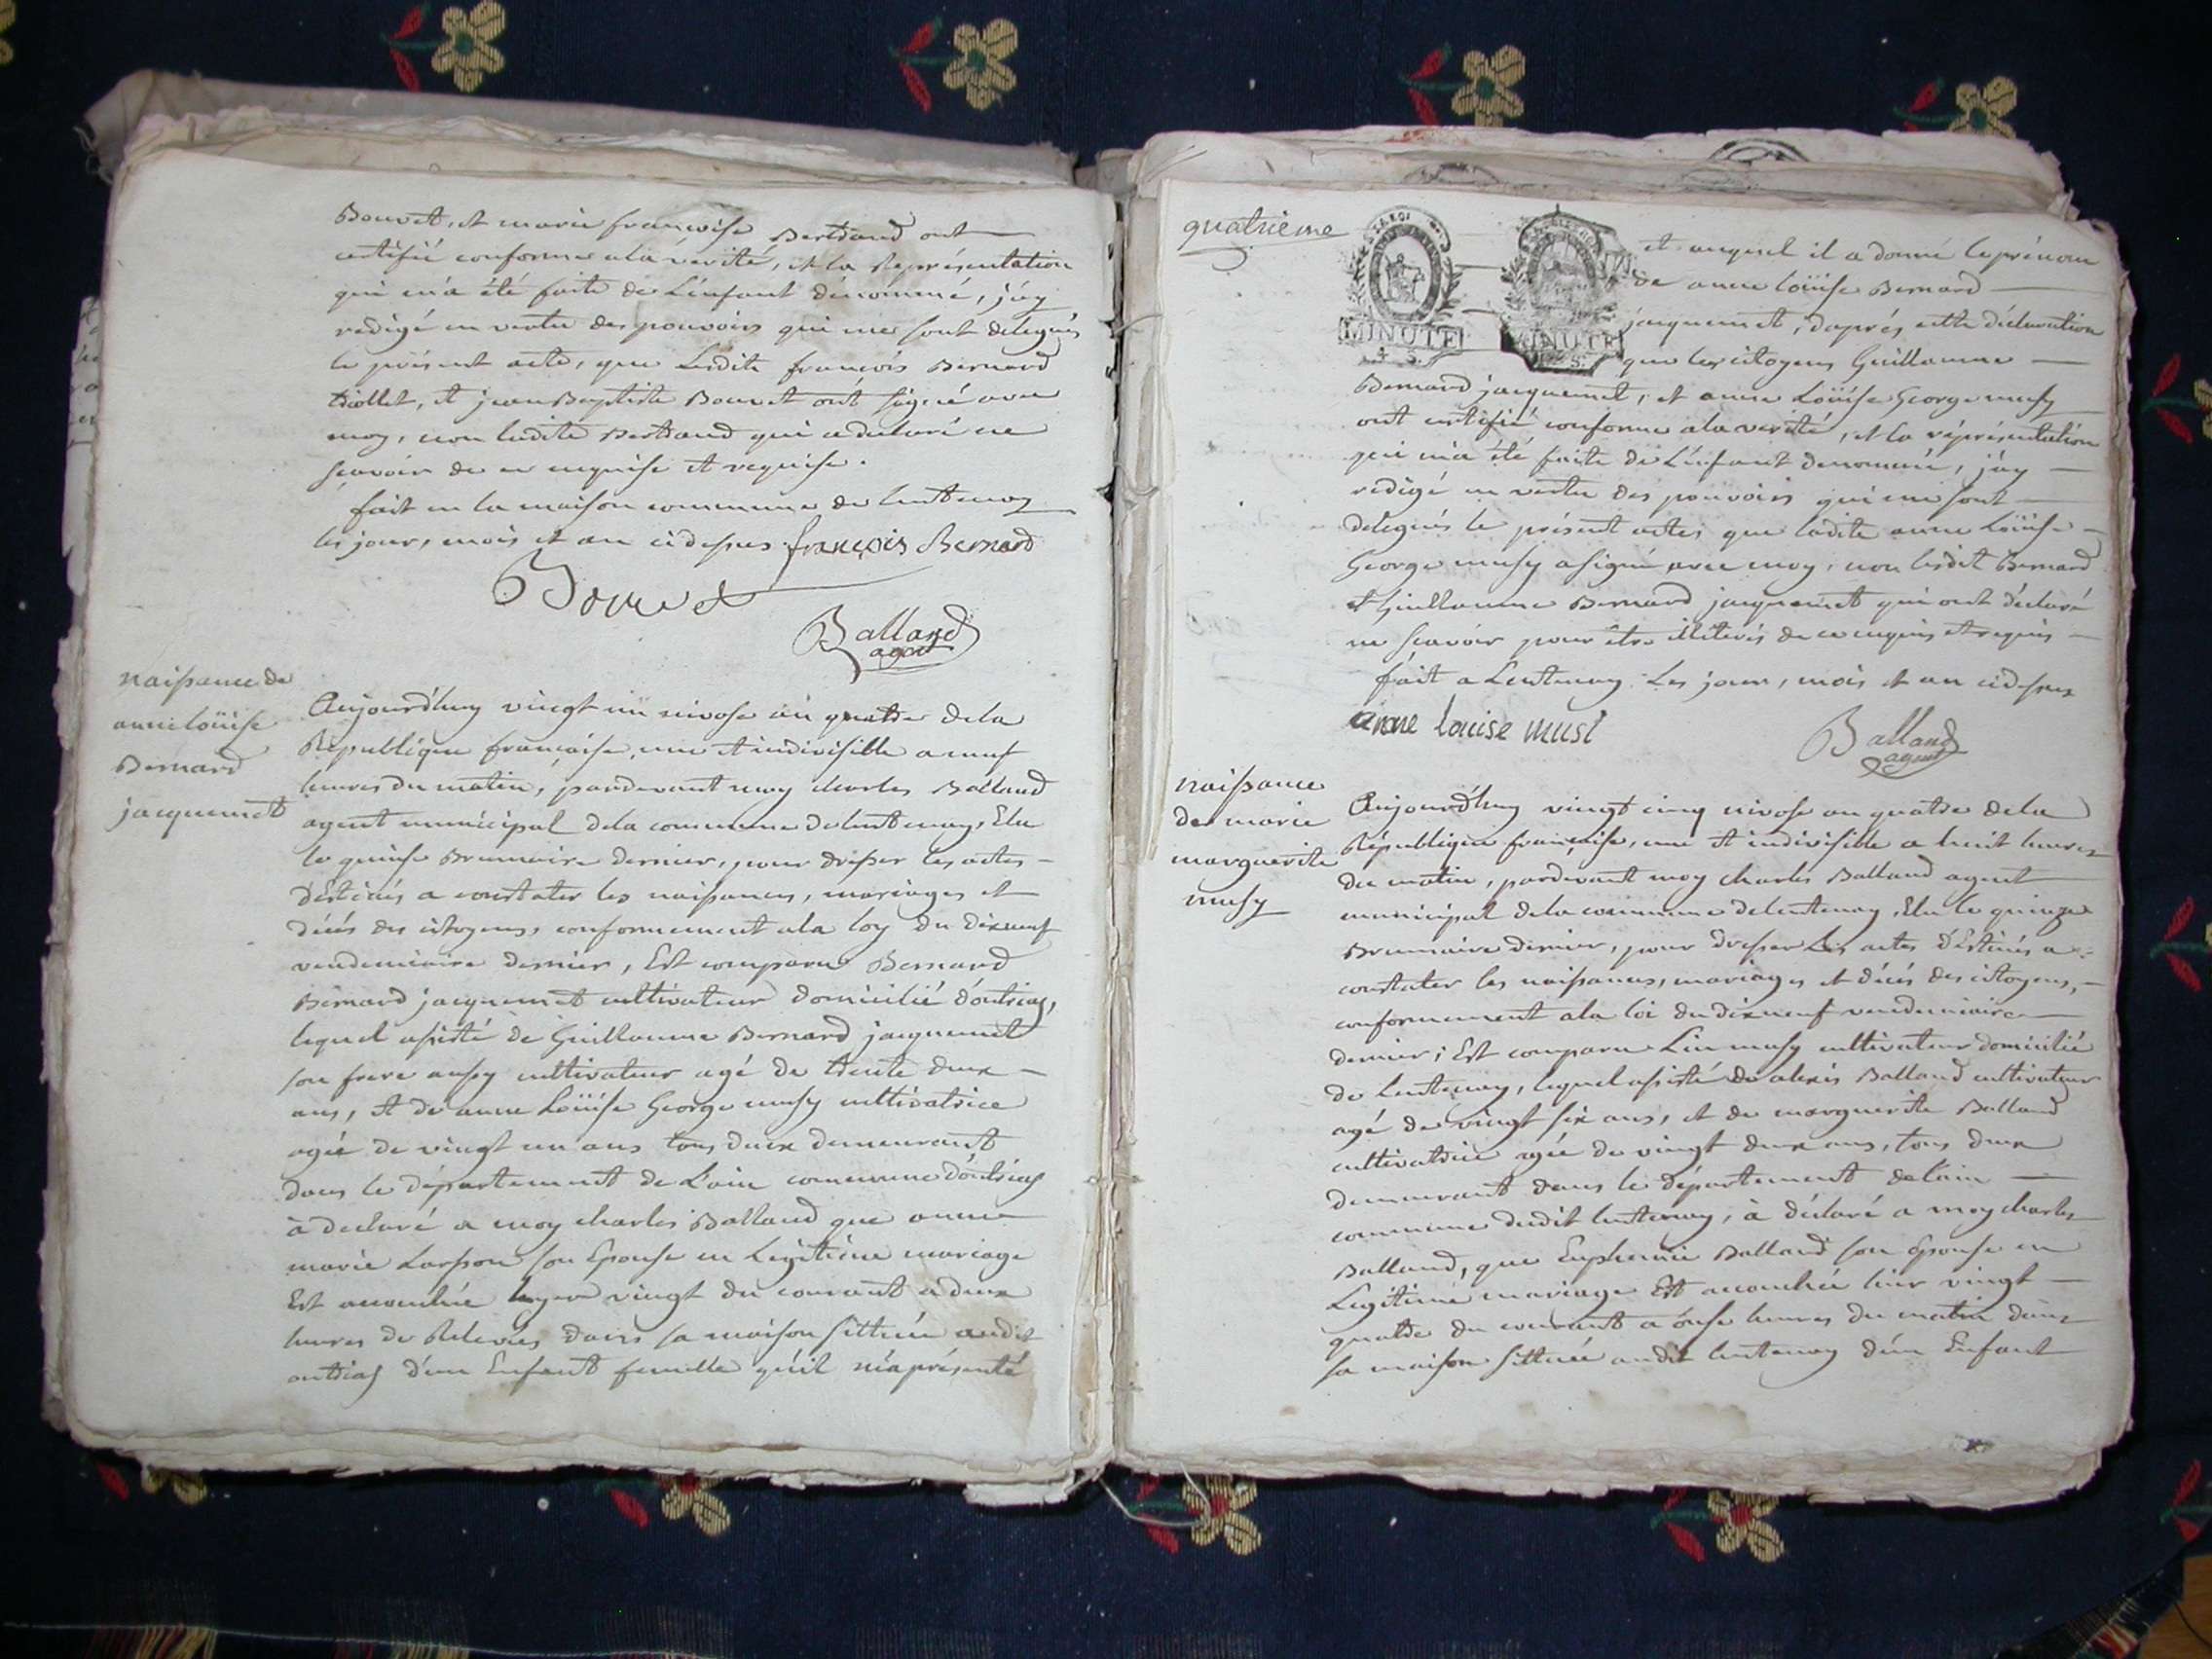 Bouvet, et marie françoise Bertrand ont
certifié conforme a la vérité, et la Représentation
qui m'a été faite de L'enfant dénommé, j'ay
redigé en vertu des pouvoirs qui me sont delegués
le présent acte, que Lesdits françois Bernard
et jean Baptiste Bouvet ont signé avec
moy, non ladite Bertrand qui a declaré ne
scavoir de ce enquise et requise.
fait en la maison commune de lentenay
les jour, mois et an cidessus. françois Bernard
Bouvet
Balland
agent
naissance de
anne loüise
Bernard
jacquemet
Aujourd'huy vingt un nivose an quatre de la
République française, une et indivisible a neuf
heures du matin, pardevant moy charles Balland
agent municipal de la commune de lentenay, Elu
le quinse Brumaire dernier, pour dresser les actes
déstinés a constater les naissances, mariages et
décés des citoyens, conformement a la loy du dixneuf
vendemiaire dernier, Est comparu Bernard
Bernard jacquemet cultivateur domicilié d'outriaz,
lequel assisté de Guillaume Bernard jacquemet
son frere aussy cultivateur agé de trente deux
ans, et de anne Loüise George musy cultivatrice
agée de vingt un ans tous deux demeurant
dans le département de L'ain commune d'outriaz
à declaré a moy charles Balland que anne
marie son Epouse en Legitime mariage
Est accouchée hyer vingt du courant a deux
heures de Relevées dans sa maison sittuée audit
outriaz d'un Enfant femelle qu'il m'a présenté
quatrieme
MINUTE
4 S.
MINUTE
S.
et auquel il a donné le prénom
de anne loüise Bernard
jacquemet, d'aprés cette déclaration
que les citoyens Guillaume
Bernard jacquemet, et anne Loüise George musy
ont certifié conforme a la verité, et la réprésentation
qui m'a été faite de L'enfant denommé, j'ay
redigé en vertu des pouvoirs qui me sont
delegués le présent actes que ladite anne Loüise
George musy a signé avec moy, non lesdit Bernard
et Guillaume Bernard jacquemet qui ont déclaré
ne scavoir pour être illiterés de ce enquis et requis
fait a Lentenay Les jour, mois et an cidessus
anne louise musi
Balland
agent
naissance
de marie
marguerite
musy
Aujourd'huy vingt cinq nivose an quatre de la
République française, une et indivisible a huit heures
du matin, pardevant moy charles Balland agent
municipal de la commune de lentenay, Elu le quinze
Brumaire dernier, pour dresser Les actes d'Estinés a
constater les naissances, mariages et décés des citoyens,
conformement a la loi du dixneuf vendemiaire
dernier; Est comparu musy cultivateur domicilié
de Lentenay, lequel assisté de alexis Balland cultivateur
agé de vingt six ans, et de marguerite Balland
cultivatrice agée de vingt deux ans, tous deux
demeurant dans le département de l'ain
commune dudit lentenay, à déclaré a moy charles
Balland, que Euphemie Balland son épouse en
Legitime mariage Est accouchée hier vingt
quatre du courant a onse heures du matin dans
sa maison sittuée audit lentenay d'un Enfant